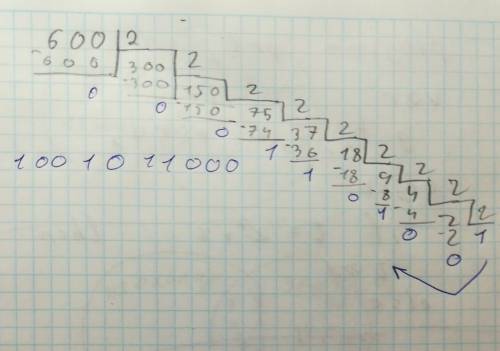 600 | 2
-600 | 300 | 2
0 -300 | 150 | 2
0 -150 | 75 | 2
0 -74 | 37 | 2
1 -36 | 18 | 2
1 -18 | 9 | 2
0 -8 | 4 | 2
1 -4 | 2 | 2
0 -2 1
0
1001011000